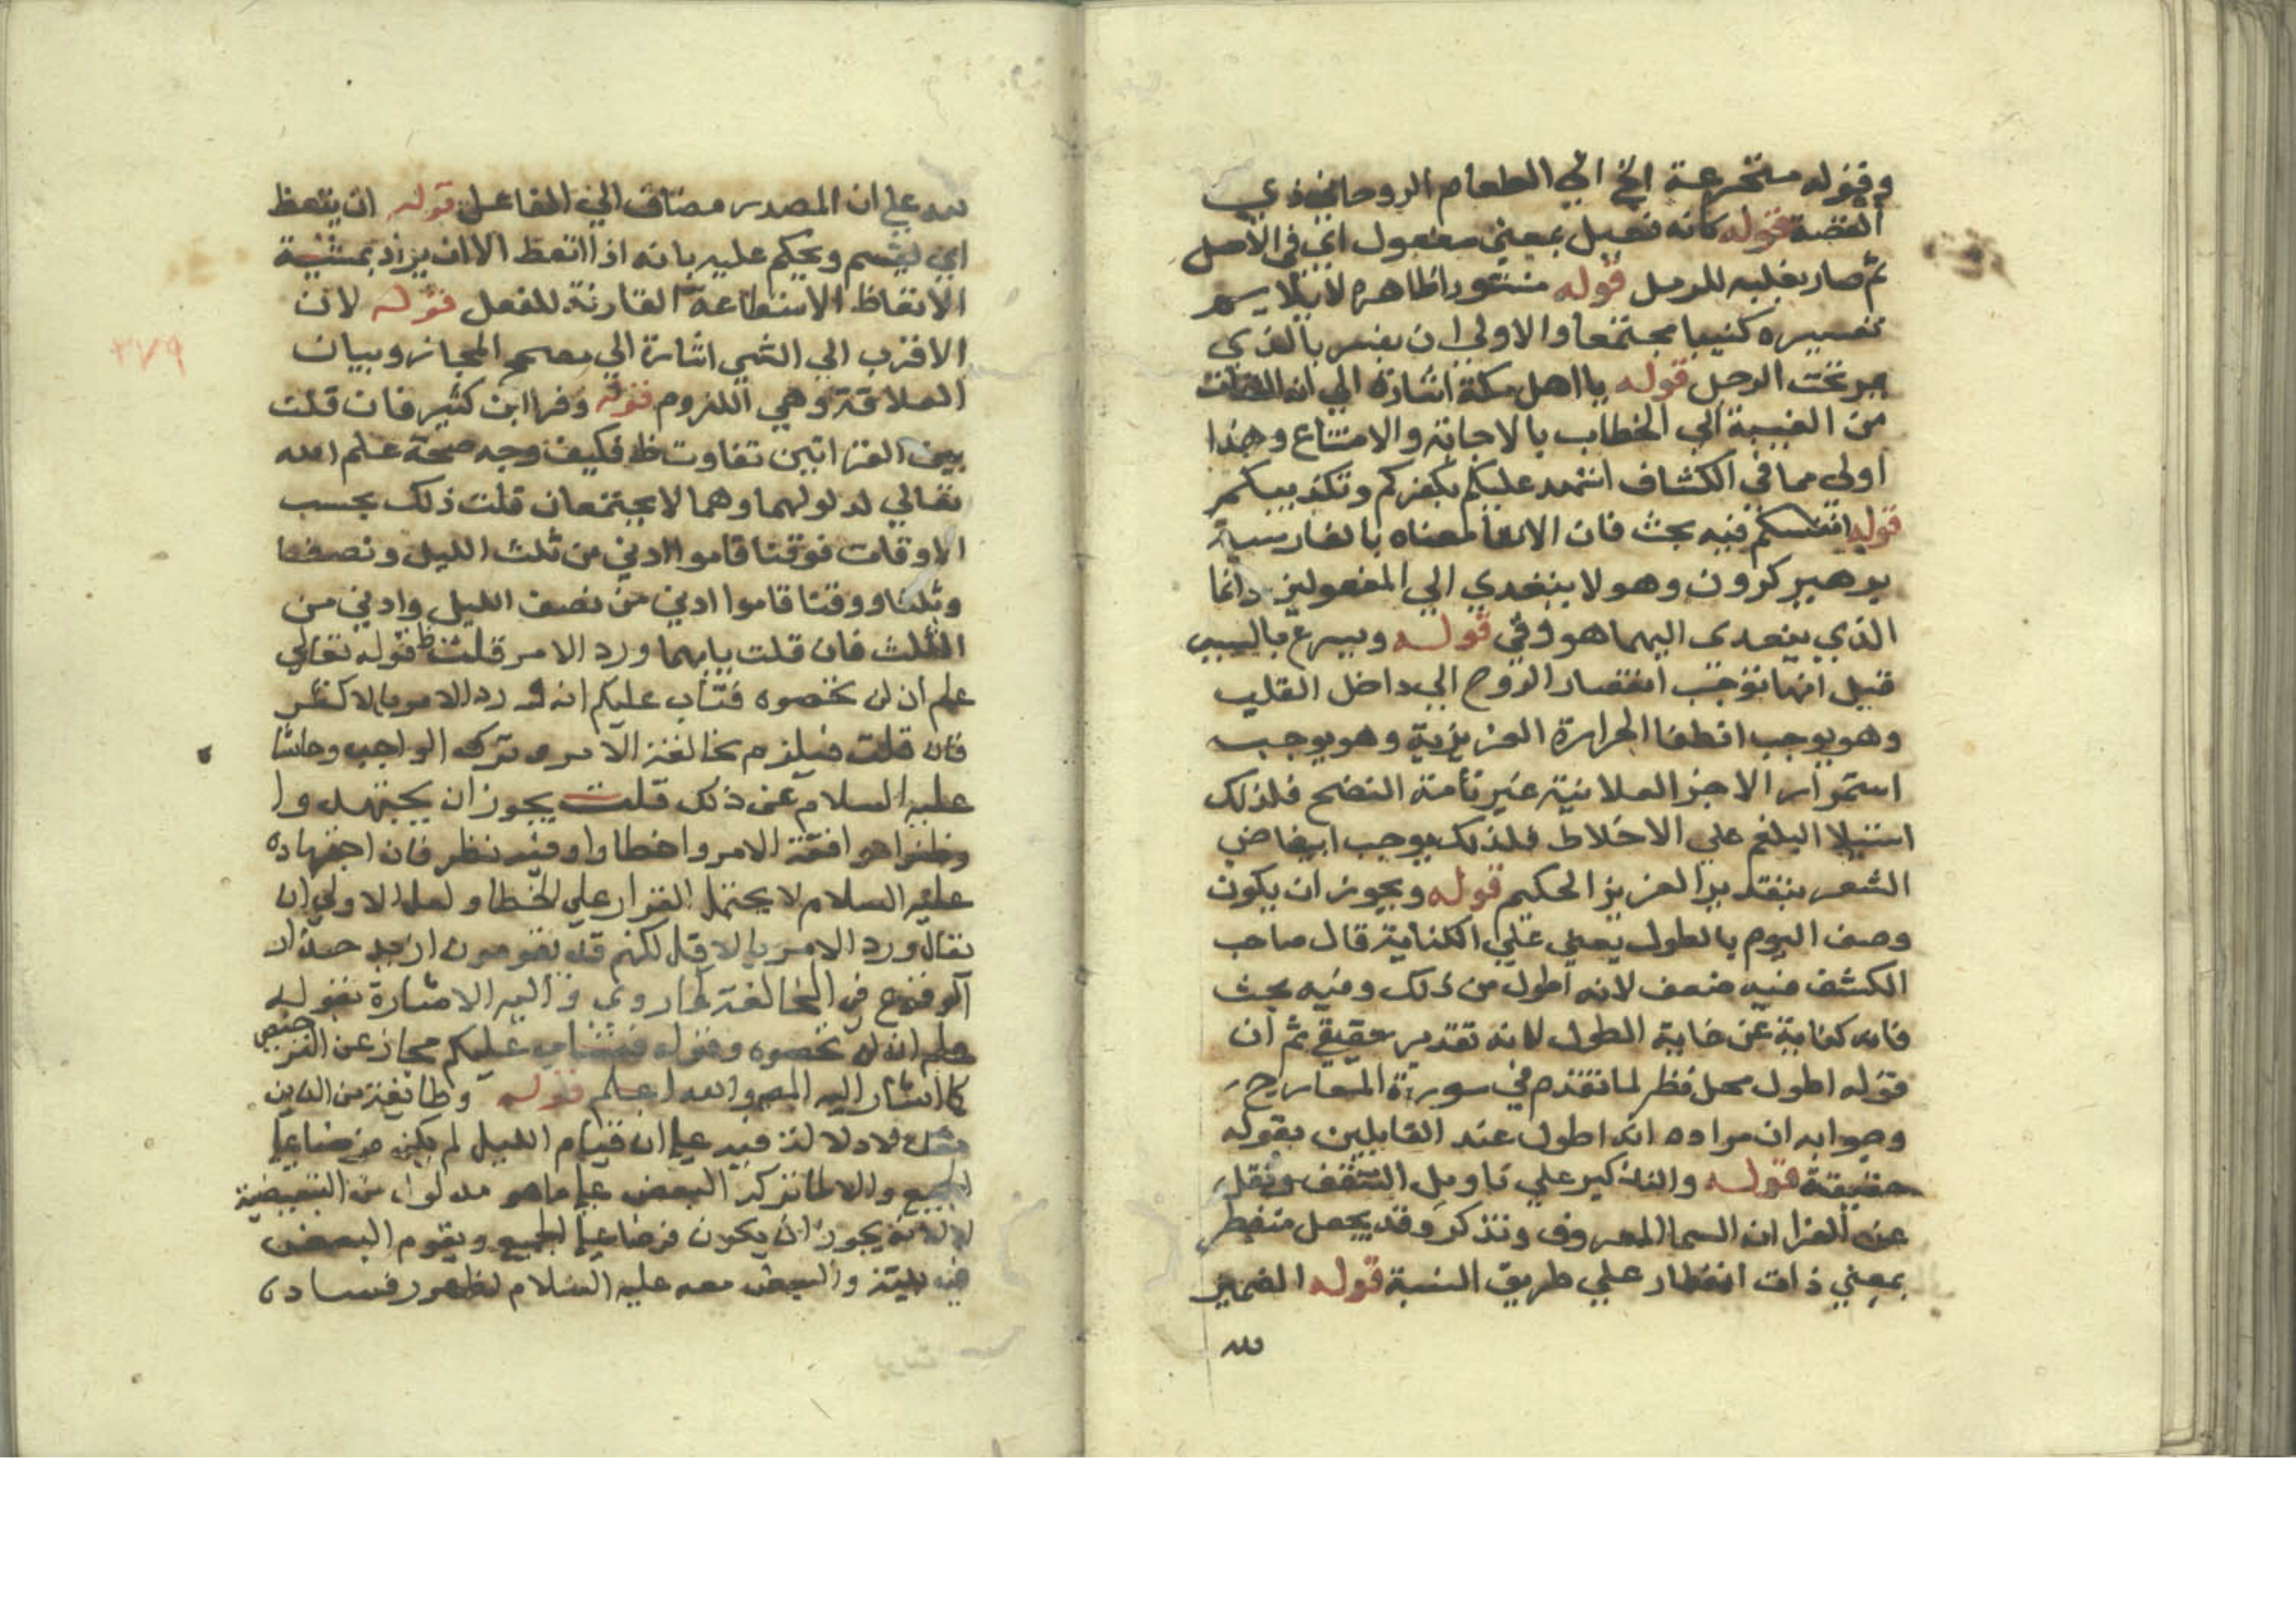 وقوله متجرعة الخ الي الطعام الروحاني ذي
الغصة قوله كانه فعيل بمعني مفعول اي في الاصل
ثم صار بغلبه للرمل قوله منثورا ظاهره لا يلايم
تفسيره كثيبا مجتمعا والاولي ان يفسر بالذي
مر تحت الرجل قوله يا اهل مكة اشارة الي انه التفات
من الغيبة الي الخطاب بالاجابة والامتناع وهذا
اولي مما في الكشاف اشهد عليكم بكفركم وتكذيبكم
قوله انفسكم فيه بحث فان الاتقا معناه بالفارسية
برهيز كرون وهو لا يتعدي الي المفعولين وانما
الذي يتعدى اليهما هو وقي قوله ويسرع بالشيب
قيل انها توجب انقصار الروح الي داخل القلب
وهو يوجب انطفا الحرارة الغريزية وهو يوجب
استمرار الاجزا العلانية غير تامة النضج فلذلك
استيلا البلغم علي الاخلاط فلذلك يوجب ابيضاض
الشعر بتقدير العزيز الحكيم قوله ويجوز ان يكون
وصف اليوم بالطول يعني علي الكناية قال صاحب
الكشف فيه ضعف لانه اطول من ذلك وفيه بحث
فانه كناية عن غاية الطول لا انه تقدير حقيقي ثم ان
قوله اطول محل نظر لما تقدم في سورة المعارج
وجوابه ان مراده انه اطول عند القايلين بقوله
حقيقة قوله والتذكير علي تاويل السقف ونقل
عن الفرا ان السما المعروف وتذكر وقد يجعل منفطر
بمعني ذات انفطار علي طريق النسبة قوله الضمير
لله
لله علي ان المصدر مضاف الي الفاعل قوله ان يتعظ
اي ليقسم ويحكم عليه بانه اذا اتعظ الا ان يراد بمشية
الاتعاظ الاستطاعة المقارنة للفعل قوله لان
الاقرب الي الشي اشارة الي مصحح المجاز وبيان
العلاقة وهي اللزوم قوله وقرا ابن كثير فان قلت
بين القراتين تفاوت ظ فكيف وجه صحة علم الله
تعالي لمدلولهما وهما لا يجتمعان قلت ذلك بحسب
الاوقات فوقتا قاموا ادني من ثلث الليل ونصفا
وثلثا ووقتا قاموا ادني من نصف الليل وادني من
الثلث فان قلت بايهما ورد الامر قلت ظ قوله تعالي
علم ان لن تحصوه فتاب عليكم انه ورد الامر بالاكثر
فان قلت فيلزم مخالفة الامر وترك الواجب وحاشا
عليه السلام عن ذلك قلت يجوز ان يجتهدوا
وظنوا موافقة الامر واخطاوا وفيه نظر فان اجتهاده
عليه السلام لا يحتمل القرار علي الخطا ولعل الاولي ان
يقال ورد الامر بالاقل لكنهم قد يقومون ازيد حذرا
الوقوع في المخالفة كما روي واليه الاشارة بقوله
علم ان لن تحصوه وقوله فتاب عليكم مجاز عن الترخيص
كما اشار اليه المص والله اعلم قوله وطائفة من الذين
معك لا دلالة فيه علي ان قيام الليل لم يكن فرضا علي
الجميع والا لما ذكر البعض علي ما هو مدلول من التبعيضية
لا لانه يجوز ان يكون فرضا علي الجميع ويقوم البعض
في بيته والبعض معه عليه السلام لظهور فساده
٣٧٩